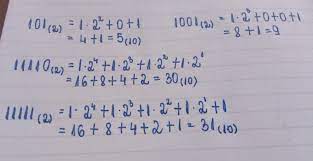 101₍₂₎ = 1·2² + 0 + 1
= 4 + 1 = 5₍₁₀₎
1001₍₂₎ = 1·2³ + 0 + 0 + 1
= 8 + 1 = 9
11110₍₂₎ = 1·2⁴ + 1·2³ + 1·2² + 1·2¹
= 16 + 8 + 4 + 2 = 30₍₁₀₎
11111₍₂₎ = 1·2⁴ + 1·2³ + 1·2² + 1·2¹ + 1
= 16 + 8 + 4 + 2 + 1 = 31₍₁₀₎